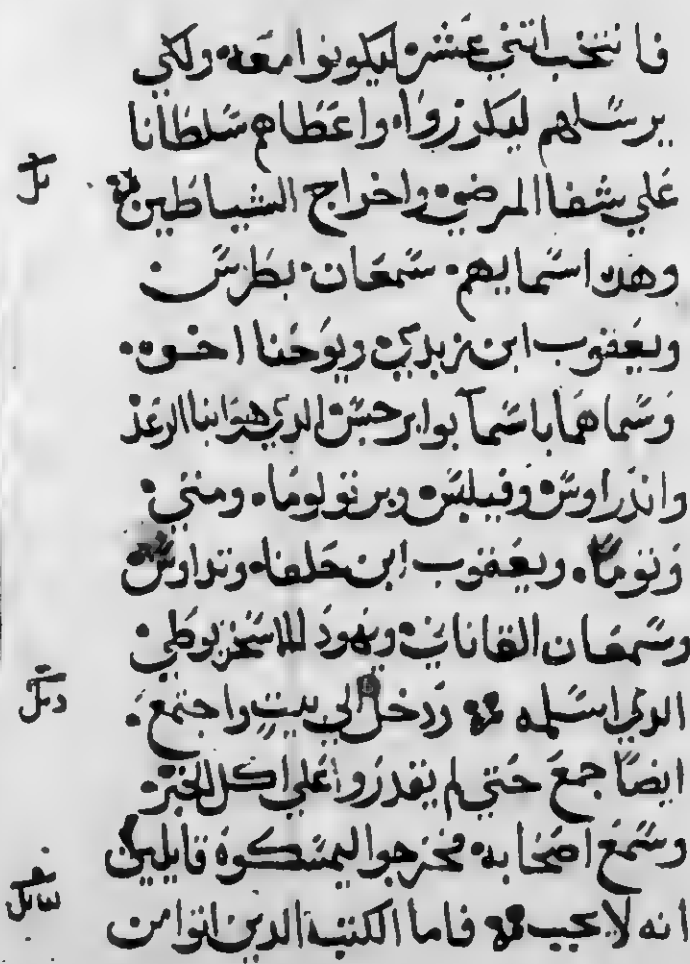 فانتخب اثني عشر ليكونوا معه ولكي
يرسلهم ليكرزوا واعطاهم سلطانا
علي شفا المرضي واخراج الشياطين
وهذه اسمايهم سمعان بطرس
ويعقوب ابن زبدي ويوحنا اخوه
وسماهما باسما بوانرجس الذي هو ابنا الرعد
واندراوس وفيلبس وبرتولوما ومتي
وتوما ويعقوب ابن حلفا وتداوس
وسمعان القاناني ويهودا الاسخريوطي
الذي اسلمه ودخل الي بيت واجتمع
ايضا جمع حتي لم يقدروا علي اكل الخبز
وسمع اصحابه فخرجوا ليمسكوه قايلين
انه لا يجيب فاما الكتبة الذين اتوا من